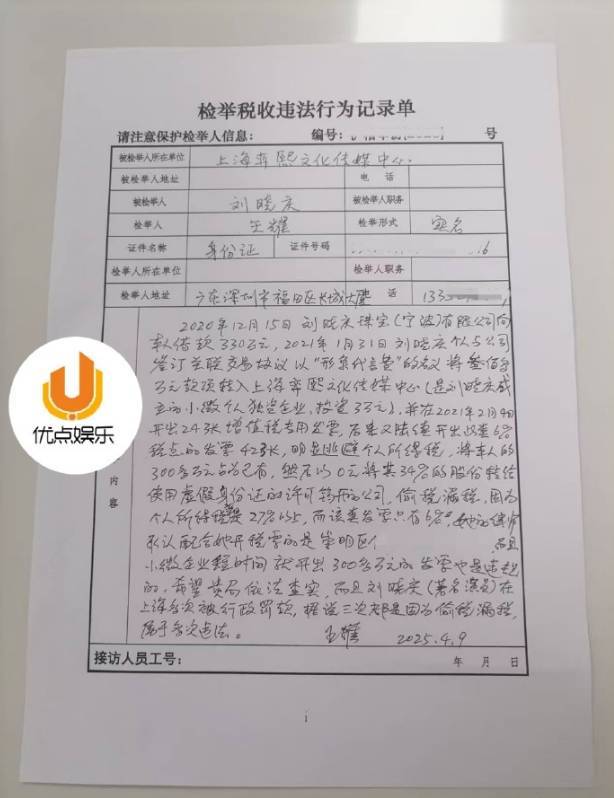 检举税收违法行为记录单
请注意保护检举人信息： 编号： 号
被检举人所在单位 上海弈熙文化传媒中心.
被检举人地址 电 话
被检举人 刘晓庆 被检举人职务
检举人 王耀 检举形式 实名
证件名称 身份证 证件号码 6
检举人所在单位 检举人职务
检举人地址 广东深圳市福田区长城大 话 133
内容
2020年12月15日刘晓庆珠宝(宁波)有限公司向
本人借款330万元，2021年1月31日刘晓庆个人与公司
签订关联交易协议以“形象代言费”的名义将叁佰多
万元款项转入上海弈熙文化传媒中心(是刘晓庆成
立的小微个人独资企业，投资3万元)，并在2021年2月
开出243张增值税专用发票，后来又陆续开出
税点的发票423张，明显逃避个人所得税，将本人的
300多万元占为已有，然后以0元将其34%的股份转给
使用虚假身份证的许可 的公司，偷税漏税，因为
个人所得税要27%以上，而该类发票只有6%，她的律师
承认配合她开税票的是崇明区 而且
小微企业短时间就开出300多万元的发票也是违规
的，希望贵局依法查实，而且刘晓庆(著名演员)在
上海多次被行政罚款，据说三次都是因为偷税漏税，
属于多次违法。 王耀 2025.4.9
接访人员工号： 年 月 日
优点娱乐